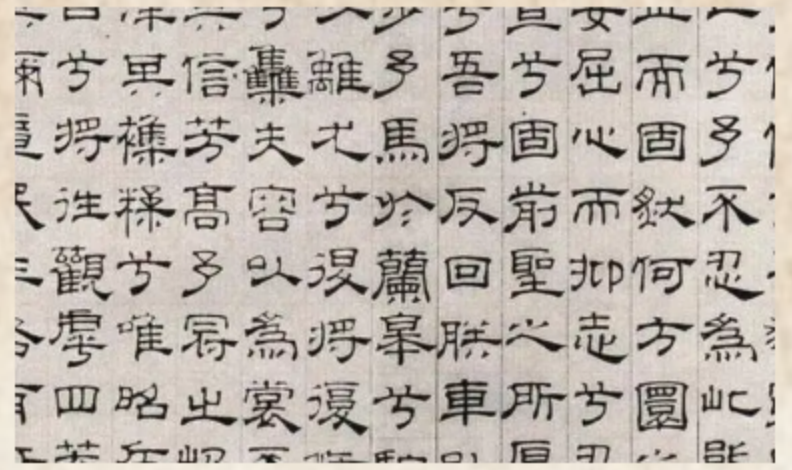 兮予不忍為此
而固然何方圜
屈心而抑志兮
兮固前聖之所
吾將反回朕車
予馬於蘭皋兮
離尤兮退將復
夫容以為裳
信芳高予冠之
其雜糅兮唯昭
兮將往觀虖四